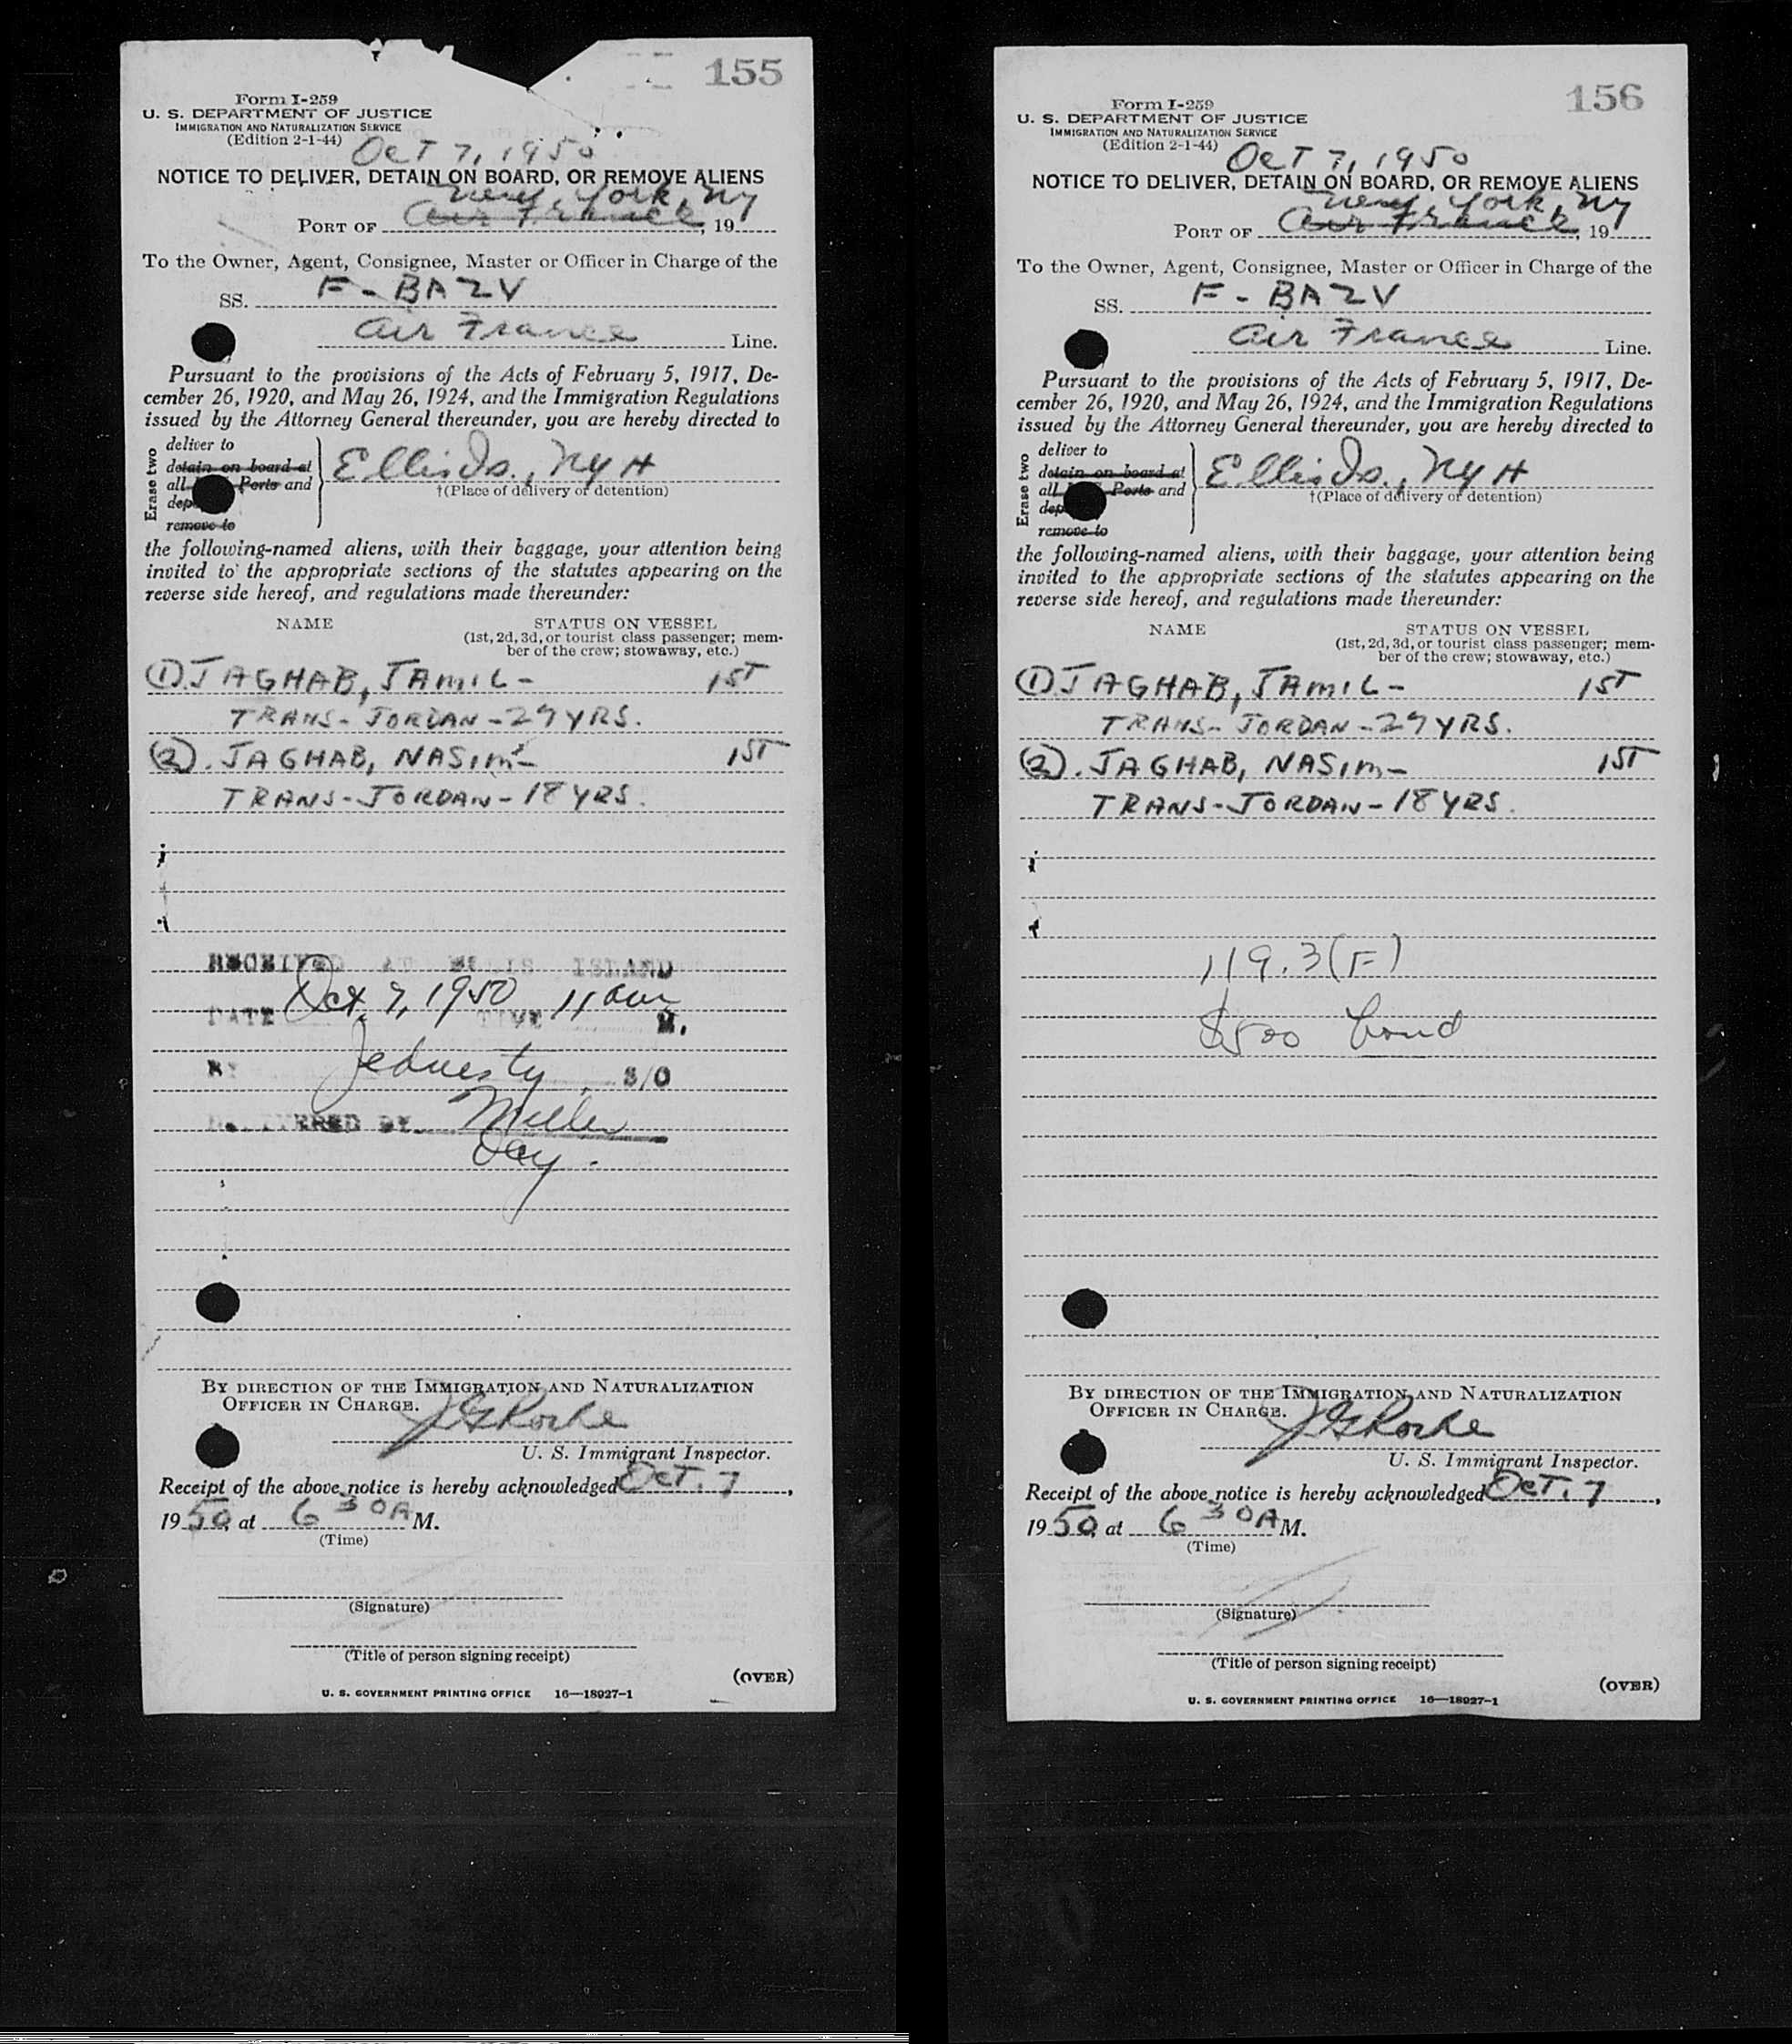 155
Form I-259
U. S. DEPARTMENT OF JUSTICE
IMMIGRATION AND NATURALIZATION SERVICE
(Edition 2-1-44)
Oct 7, 1950
NOTICE TO DELIVER, DETAIN ON BOARD, OR REMOVE ALIENS
New York, NY
PORT OF Air France, 19
To the Owner, Agent, Consignee, Master or Officer in Charge of the
SS. F-BAZV
Air France Line.
Pursuant to the provisions of the Acts of February 5, 1917, De-
cember 26, 1920, and May 26, 1924, and the Immigration Regulations
issued by the Attorney General thereunder, you are hereby directed to
Erase two
deliver to
detain on board at
all Ports and
remove to
Ellis Is., NYH
†(Place of delivery or detention)
the following-named aliens, with their baggage, your attention being
invited to the appropriate sections of the statutes appearing on the
reverse side hereof, and regulations made thereunder:
NAME STATUS ON VESSEL
(1st, 2d, 3d, or tourist class passenger; mem-
ber of the crew; stowaway, etc.)
(1). JAGHAB, JAMIL - 1ST
TRANS-JORDAN - 27 YRS.
(2). JAGHAB, NASIM - 1ST
TRANS-JORDAN - 18 YRS.
RECEIVED AT ELLIS ISLAND
DATE Oct. 7, 1950 TIME 11 am M.
BY S/O
DELIVERED BY Miller
BY DIRECTION OF THE IMMIGRATION AND NATURALIZATION
OFFICER IN CHARGE.
U. S. Immigrant Inspector.
Receipt of the above notice is hereby acknowledged Oct. 7,
1950, at 6 30 A M.
(Time)
(Signature)
(Title of person signing receipt)
(OVER)
U. S. GOVERNMENT PRINTING OFFICE 16—18927-1
156
Form I-259
U. S. DEPARTMENT OF JUSTICE
IMMIGRATION AND NATURALIZATION SERVICE
(Edition 2-1-44)
Oct 7, 1950
NOTICE TO DELIVER, DETAIN ON BOARD, OR REMOVE ALIENS
New York, NY
PORT OF Air France, 19
To the Owner, Agent, Consignee, Master or Officer in Charge of the
SS. F-BAZV
Air France Line.
Pursuant to the provisions of the Acts of February 5, 1917, De-
cember 26, 1920, and May 26, 1924, and the Immigration Regulations
issued by the Attorney General thereunder, you are hereby directed to
Erase two
deliver to
detain on board at
all Ports and
remove to
Ellis Is., NYH
†(Place of delivery or detention)
the following-named aliens, with their baggage, your attention being
invited to the appropriate sections of the statutes appearing on the
reverse side hereof, and regulations made thereunder:
NAME STATUS ON VESSEL
(1st, 2d, 3d, or tourist class passenger; mem-
ber of the crew; stowaway, etc.)
(1) JAGHAB, JAMIL - 1ST
TRANS-JORDAN - 27 YRS.
(2). JAGHAB, NASIM - 1ST
TRANS-JORDAN - 18 YRS.
119.3(F)
$500 bond
BY DIRECTION OF THE IMMIGRATION AND NATURALIZATION
OFFICER IN CHARGE.
U. S. Immigrant Inspector.
Receipt of the above notice is hereby acknowledged Oct. 7,
1950, at 6 30 A M.
(Time)
(Signature)
(Title of person signing receipt)
(OVER)
U. S. GOVERNMENT PRINTING OFFICE 16—18927-1